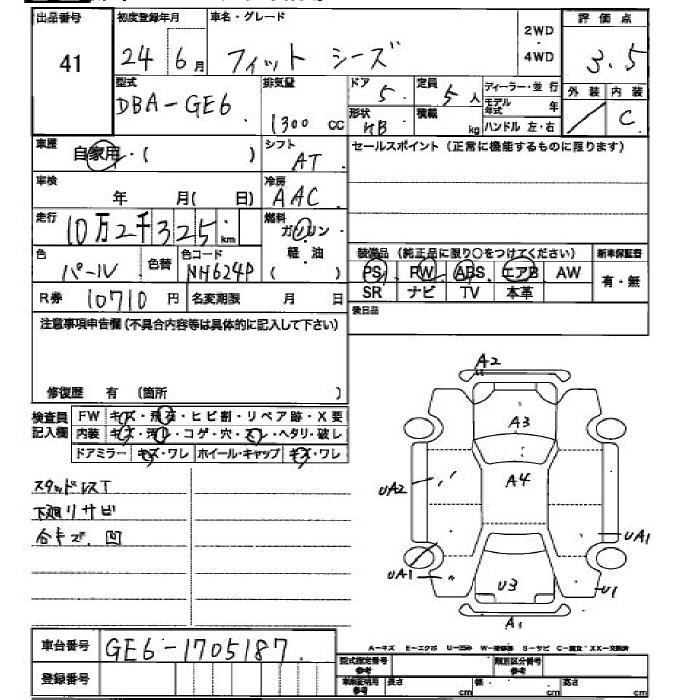 出品番号 初度登録年月 車名・グレード 2WD・4WD 評価点
41 24 6月 フィット シーズ 3.5
型式 排気量 ドア 定員 ディーラー・並行 外装 内装
DBA-GE6 1300 CC 5 5人 モデル年式 年 C
形状 積載 kg ハンドル 左・右
HB
車歴 シフト セールスポイント (正常に機能するものに限ります)
自家用・( ) AT
車検 冷房
年 月( 日) AAC
走行 燃料
10万2千325km ガソリン
色 色替 色コード 軽油 装備品 (純正品に限り○をつけてください) 新車保証書
パール NH624P ( ) PS PW ABS エアB AW 有・無
R券 10710円 名変期限 月 日 SR ナビ TV 本革
注意事項申告欄 (不具合内容等は具体的に記入して下さい) 後日品
修復歴 有 (箇所 )
検査員記入欄 FW キズ・飛石・ヒビ割・リペア跡・X要
内装 キズ・汚レ・コゲ・穴・スレ・ヘタリ・破レ
ドアミラー キズ・ワレ ホイール・キャップ キズ・ワレ
スタッドレスT
下廻りサビ
合キズ.凹
A2
A3
A4
UA2
UA1
UA1 U3 U1
A1
車台番号 GE6-1705187
A-キズ E-エクボ U-凹み W-補修跡 S-サビ C-腐食 XX-交換済
登録番号 型式指定番号 参考 類別区分番号 参考
車庫証明用 参考 長さ cm 幅 cm 高さ cm